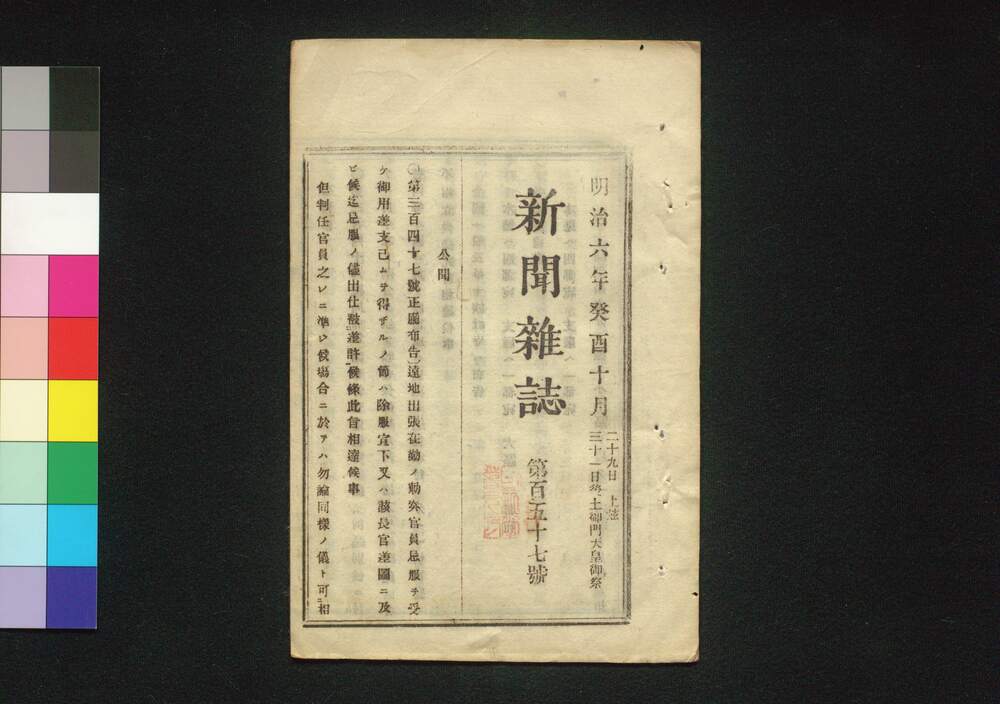 明治六年癸酉十月
二十九日 上弦
三十一日後土御門天皇御祭
新聞雜誌
第百五十七號
公聞
〇第三百四十七號正園布告遠地出張在勤ノ勅奏官員忌服ヲ受
ケ御用差支已ムヲ得ザルノ節ハ除服宣下又ハ該長官差圖ニ及
ビ候迄忌服ノ儘出仕被差許候條此旨相達候事
但判任官員之レニ準シ候塲合ニ於テハ勿論同樣ノ儀ト可相